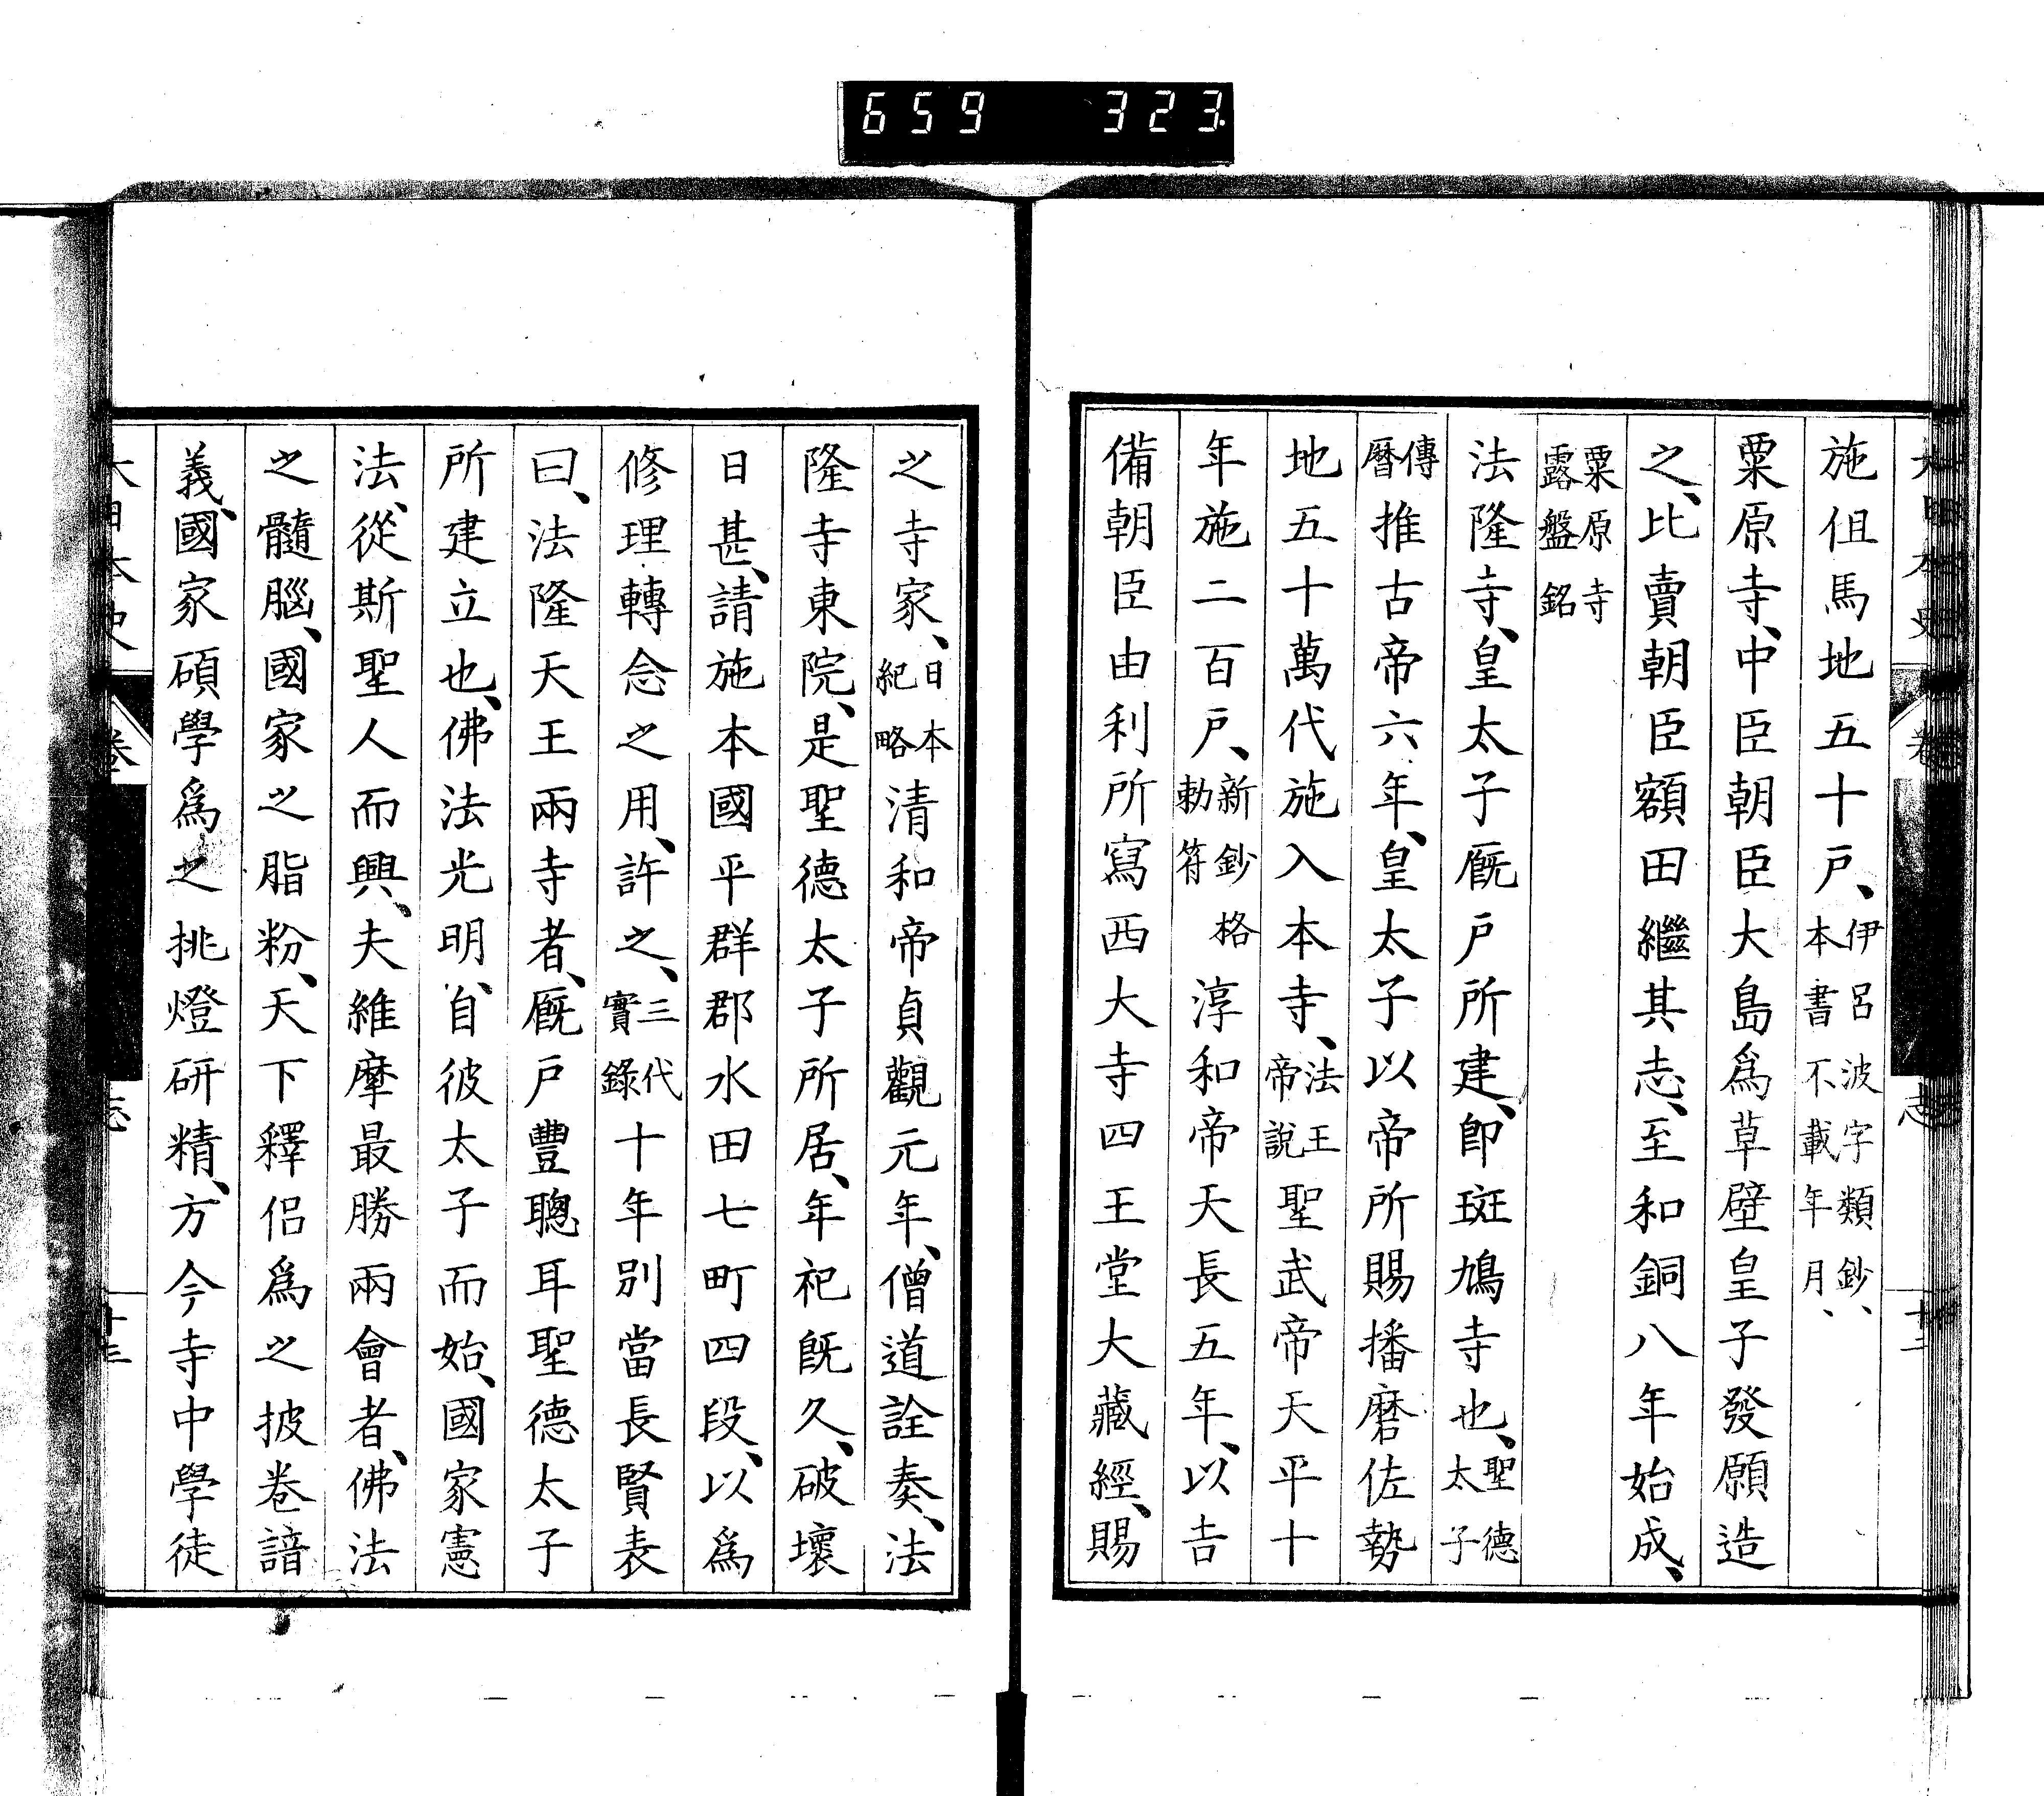 659 323
施伹馬地五十戸、伊呂波字類鈔、本書不載年月、
粟原寺、中臣朝臣大島爲草壁皇子發願造
之、比賣朝臣額田繼其志、至和銅八年始成、
粟原寺露盤銘
法隆寺、皇太子厩戸所建、卽斑鳩寺也、聖德太子
傳曆推古帝六年、皇太子以帝所賜播磨佐勢
地五十萬代施入本寺、法王帝說聖武帝天平十
年施二百戸、新鈔格勅符淳和帝天長五年、以吉
備朝臣由利所寫西大寺四王堂大藏經、賜
之寺家、日本紀略清和帝貞觀元年、僧道詮奏、法
隆寺東院、是聖德太子所居、年祀既久、破壞
日甚、請施本國平群郡水田七町四段、以爲
修理轉念之用、許之、三代實錄十年別當長賢表
曰、法隆天王兩寺者、厩戸豐聰耳聖德太子
所建立也、佛法光明、自彼太子而始、國家憲
法、從斯聖人而興、夫維摩最勝兩會者、佛法
之髓腦、國家之脂粉、天下釋侶爲之披卷諳
義、國家碩學爲之挑燈研精、方今寺中學徒
大日本史 卷 志